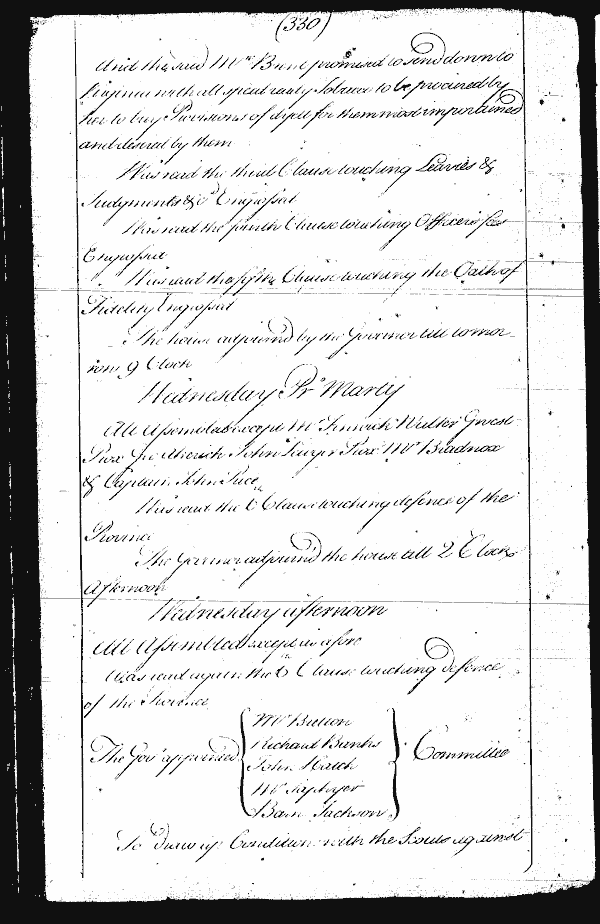 (330)
And the said Mr Brent promised to send down to
Virginia with all speed ready Tobacco to be procured by
her to buy Provisions of dyett for them most importuned
and desired by them
Was read the third Clause touching Leavies &
Judgments &c Engrossat
Was read the fourth Clause touching Officers fees
Engrossat
Was read the fifth Clause touching the Oath of
Fidelity Engrossat
The house adjourned by the Governor till tomor-
row 9 Clock
Wednesday Pro Martij
All Assembled except Mr Fenwick Walter Guest
John Prox Mr Bradnox
& Captain John Price
Was read the 6 Clause touching defence of the
Province
The Governor adjourned the house till 2 Clock
Afternoon
Wednesday afternoon
All Assembled except as afore
Was read again the 6 Clause touching defence
of the Province
The Govr appointed
Mr Bretton
Richard Banks
John Hatch
Mr
Barn Jackson
Committee
To Draw up Condition with the Souls against